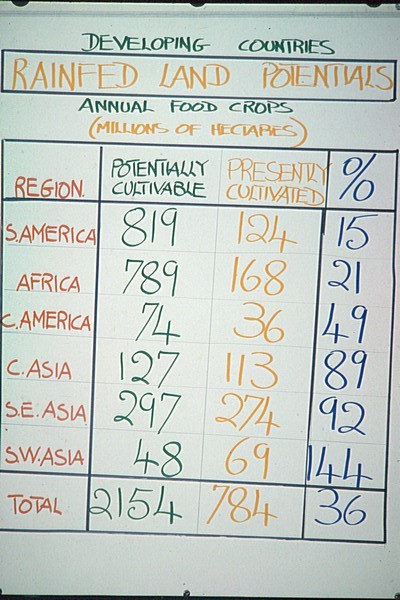 DEVELOPING COUNTRIES
RAINFED LAND POTENTIALS
ANNUAL FOOD CROPS
(MILLIONS OF HECTARES)
REGION. POTENTIALLY CULTIVABLE PRESENTLY CULTIVATED %
S.AMERICA 819 124 15
AFRICA 789 168 21
C.AMERICA 74 36 49
C.ASIA 127 113 89
S.E.ASIA 297 274 92
S.W.ASIA 48 69 144
TOTAL 2154 784 36